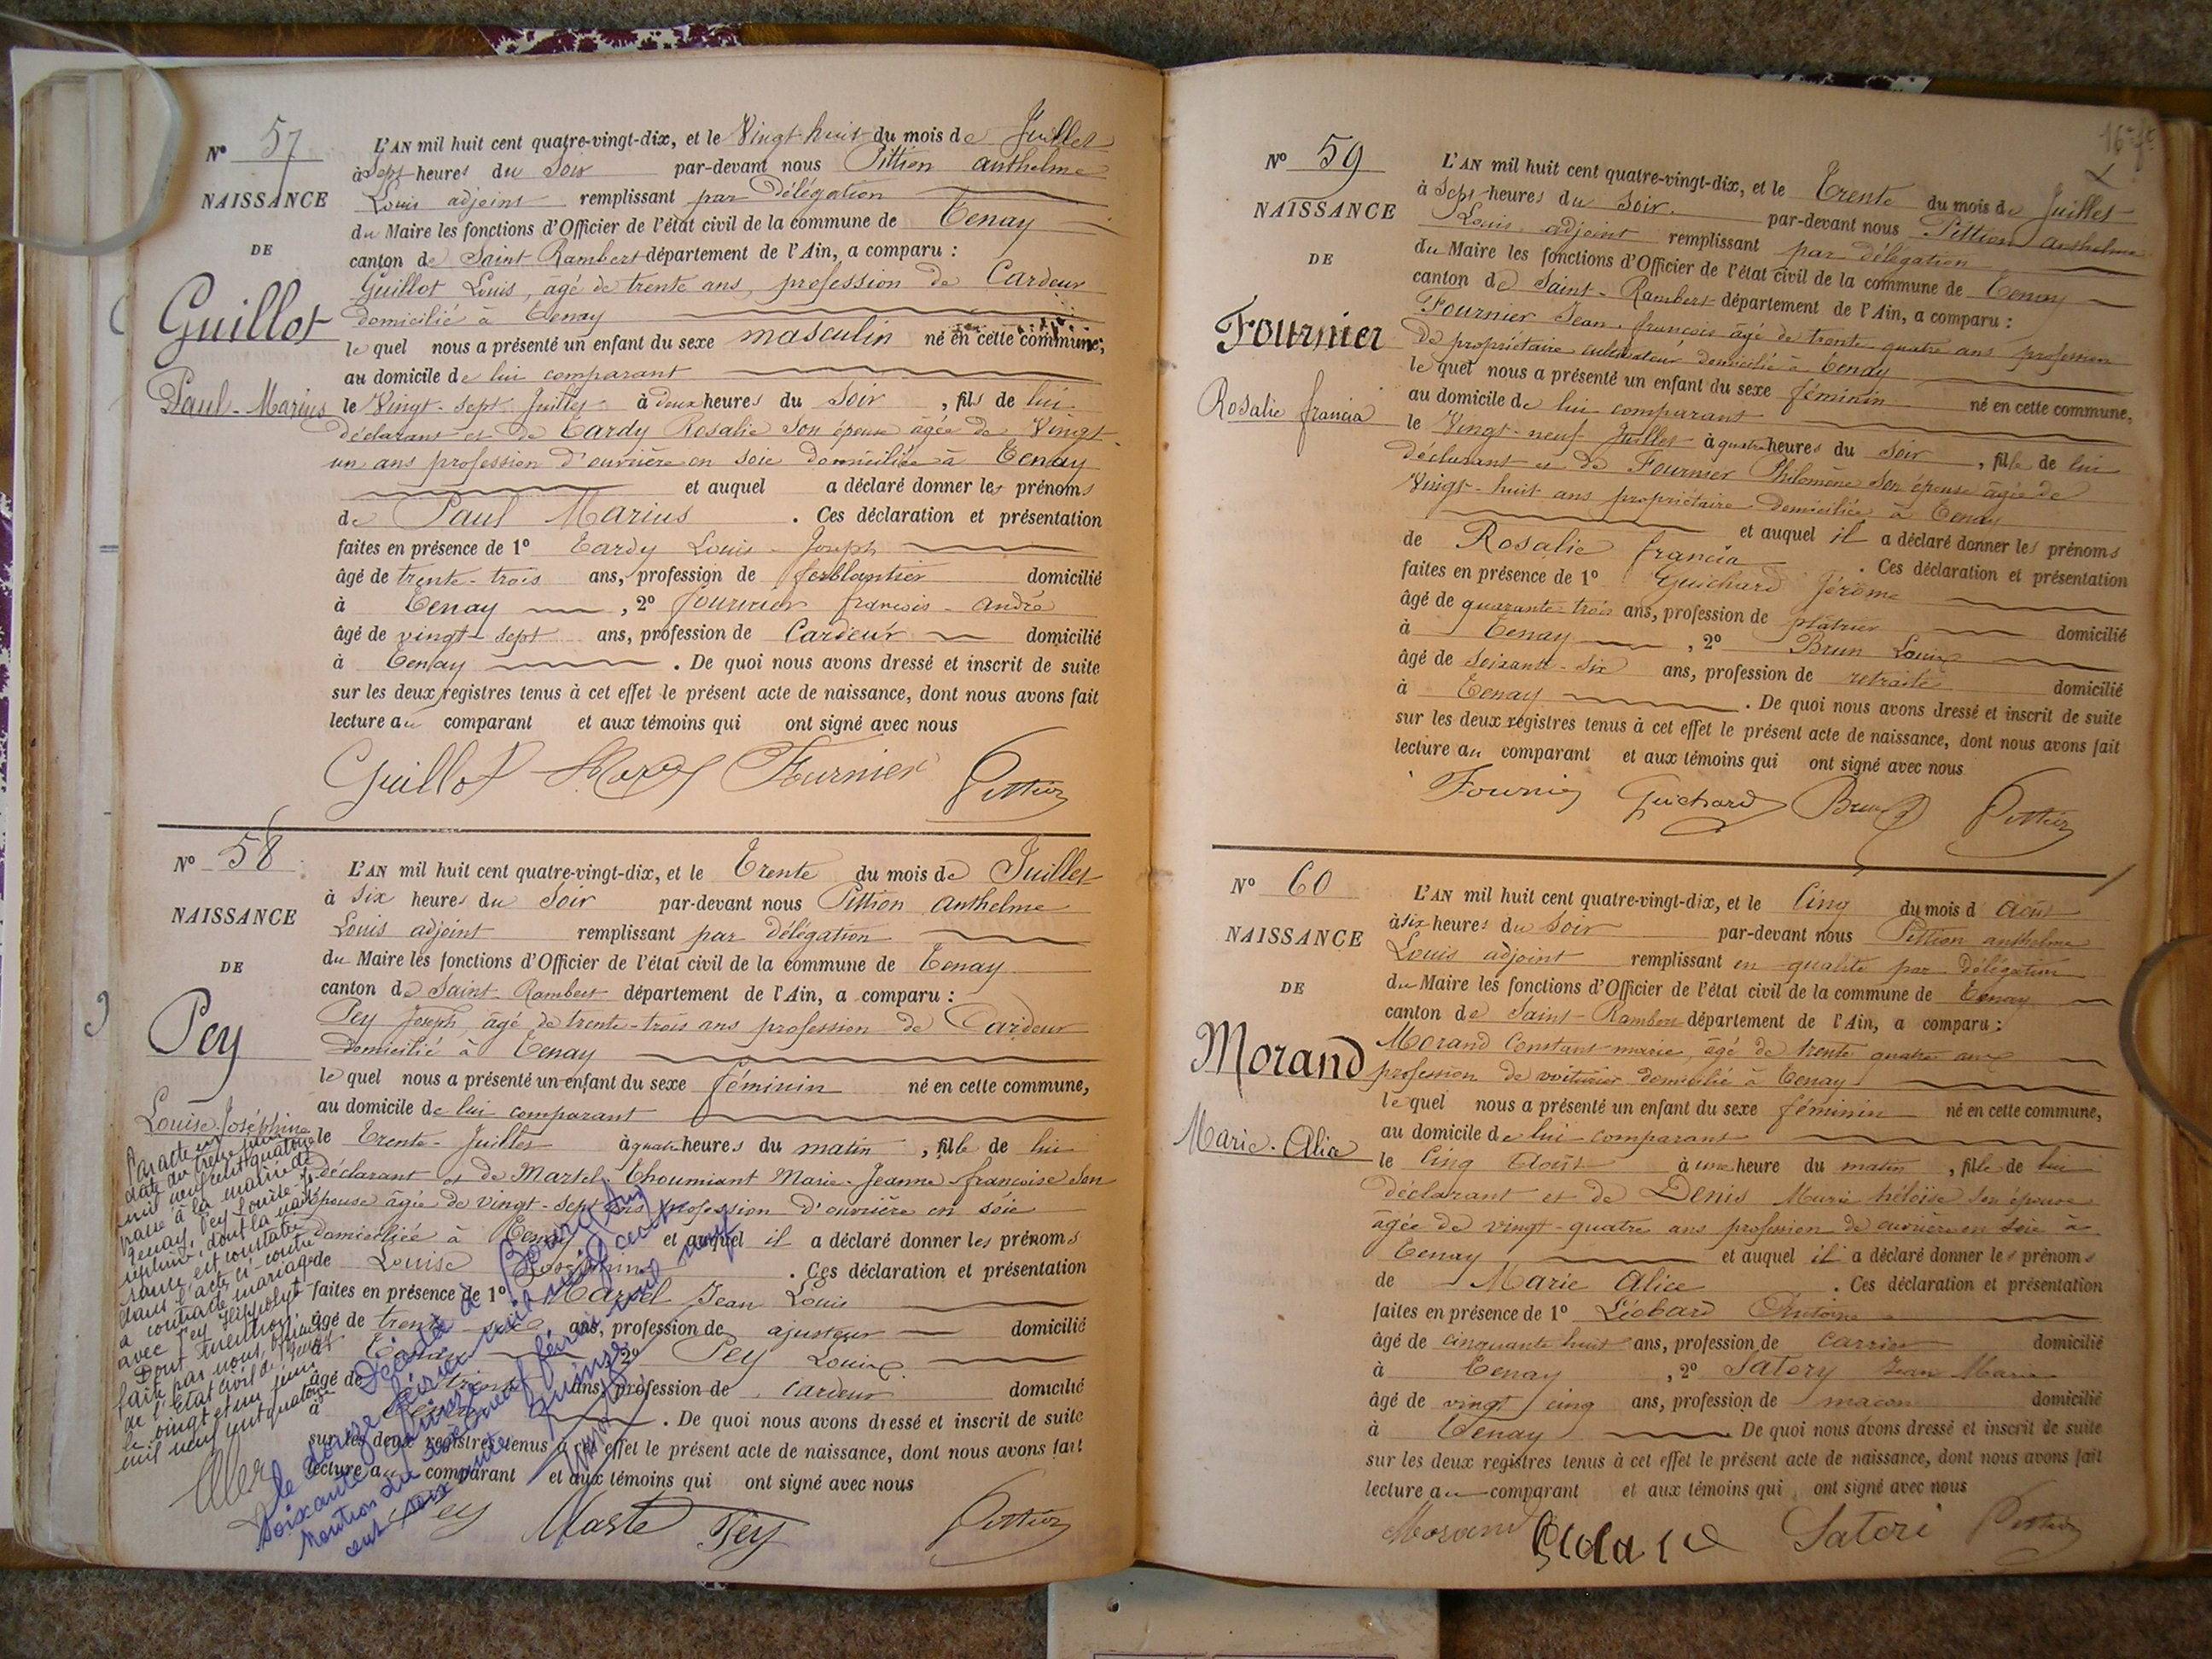 N° 57
NAISSANCE
DE
Guillot
Paul-Marius
L'AN mil huit cent quatre-vingt-dix, et le Vingt-huit du mois de Juillet
à Sept heures du Soir par-devant nous Pittion Anthelme
Louis adjoint remplissant par Délégation
du Maire les fonctions d'Officier de l'état civil de la commune de Tenay
canton de Saint Rambert département de l'Ain, a comparu :
Guillot Louis, agé de trente ans, profession de Cardeur
domicilié à Tenay
le quel nous a présenté un enfant du sexe masculin né en cette commune,
au domicile de lui comparant
le Vingt-sept Juillet à deux heures du Soir, fils de lui
déclarant et de Tardy Rosalie son épouse âgée de Vingt
un ans profession d'ouvrière en soie domiciliée à Tenay
et auquel a déclaré donner les prénoms
de Paul Marius . Ces déclaration et présentation
faites en présence de 1° Tardy Louis-Joseph
âgé de trente-trois ans, profession de ferblantier domicilié
à Tenay , 2° Fournier françois-andré
âgé de vingt-sept ans, profession de Cardeur domicilié
à Tenay . De quoi nous avons dressé et inscrit de suite
sur les deux registres tenus à cet effet le présent acte de naissance, dont nous avons fait
lecture au comparant et aux témoins qui ont signé avec nous
Guillot Fournier Pittion
N° 58
NAISSANCE
DE
Pey
Louise-Joséphine
L'AN mil huit cent quatre-vingt-dix, et le Trente du mois de Juillet
à Six heures du Soir par-devant nous Pittion Anthelme
Louis adjoint remplissant par délégation
du Maire les fonctions d'Officier de l'état civil de la commune de Tenay
canton de Saint Rambert département de l'Ain, a comparu :
Pey Joseph, âgé de trente-trois ans profession de Cardeur
Domicilié à Tenay
le quel nous a présenté un enfant du sexe féminin né en cette commune,
au domicile de lui comparant
le Trente-Juillet à quatre heures du matin, fille de lui
déclarant et de Martel-Thoumiant Marie-Jeanne-françoise Son
épouse âgée de vingt-sept ans profession d'ouvrière en soie
domiciliée à Tenay et auquel il a déclaré donner les prénoms
de Louise Joséphine . Ces déclaration et présentation
faites en présence de 1° Martel Jean Louis
âgé de trente six ans, profession de ajusteur domicilié
à Tenay 2° Pey Louis
âgé de trente ans, profession de Cardeur domicilié
à Tenay . De quoi nous avons dressé et inscrit de suite
sur les deux registres tenus à cet effet le présent acte de naissance, dont nous avons fait
lecture au comparant et aux témoins qui ont signé avec nous
Pey Martel Pey Pittion
Par acte en
date du treize juin
mil neuf cent quatorze
passé à la mairie de
Tenay, Pey Louise-Jo
séphine, dont la nais
sance est constatée
dans l'acte ci-contre
a contracté mariage
avec Pey Hippolyte
Dont mention
faite par nous, officier
de l'Etat civil de Tenay
le vingt et un juin
mil neuf cent quatorze
Décédée à Bourg (Ain)
le douze février mil neuf cent
soixante quinze
Mention du dix neuf février mil neuf
cent soixante quinze
N° 59
NAISSANCE
DE
Fournier
Rosalie francia
L'AN mil huit cent quatre-vingt-dix, et le Trente du mois de Juillet
à Sept heures du Soir par-devant nous Pittion Anthelme
Louis adjoint remplissant par délégation
du Maire les fonctions d'Officier de l'état civil de la commune de Tenay
canton de Saint-Rambert département de l'Ain, a comparu :
Fournier Jean-françois âgé de trente quatre ans profession
De propriétaire cultivateur domicilié à Tenay
le quel nous a présenté un enfant du sexe féminin né en cette commune,
au domicile de lui comparant
le Vingt-neuf Juillet à quatre heures du Soir, fille de lui
déclarant et de Fournier Philomène Son épouse âgée de
Vingt-huit ans propriétaire Domiciliée à Tenay
et auquel il a déclaré donner les prénoms
de Rosalie francia . Ces déclaration et présentation
faites en présence de 1° Guichard Jérôme
âgé de quarante-trois ans, profession de platrier domicilié
à Tenay , 2° Brun Louis
âgé de soixante-six ans, profession de retraité domicilié
à Tenay . De quoi nous avons dressé et inscrit de suite
sur les deux registres tenus à cet effet le présent acte de naissance, dont nous avons fait
lecture au comparant et aux témoins qui ont signé avec nous
Fournier Guichard Brun Pittion
N° 60
NAISSANCE
DE
Morand
Marie-Alice
L'AN mil huit cent quatre-vingt-dix, et le Cinq du mois d'Août
à six heures du Soir par-devant nous Pittion anthelme
Louis adjoint remplissant en qualité par Délégation
du Maire les fonctions d'Officier de l'état civil de la commune de Tenay
canton de Saint-Rambert département de l'Ain, a comparu :
Morand Constant-marie, âgé de trente quatre ans
profession de voiturier domicilié à Tenay
le quel nous a présenté un enfant du sexe féminin né en cette commune,
au domicile de lui comparant
le Cinq Août à une heure du matin, fille de lui
déclarant et de Denis Marie héloïse Son épouse
âgée de vingt-quatre ans profession de ouvrière en soie à
Tenay et auquel il a déclaré donner les prénoms
de Marie Alice . Ces déclaration et présentation
faites en présence de 1° Léobard Antoine
âgé de cinquante huit ans, profession de carrier domicilié
à Tenay , 2° Satory Jean Marie
âgé de vingt cinq ans, profession de maçon domicilié
à Tenay De quoi nous avons dressé et inscrit de suite
sur les deux registres tenus à cet effet le présent acte de naissance, dont nous avons fait
lecture au comparant et aux témoins qui ont signé avec nous
Morand Satori Pittion